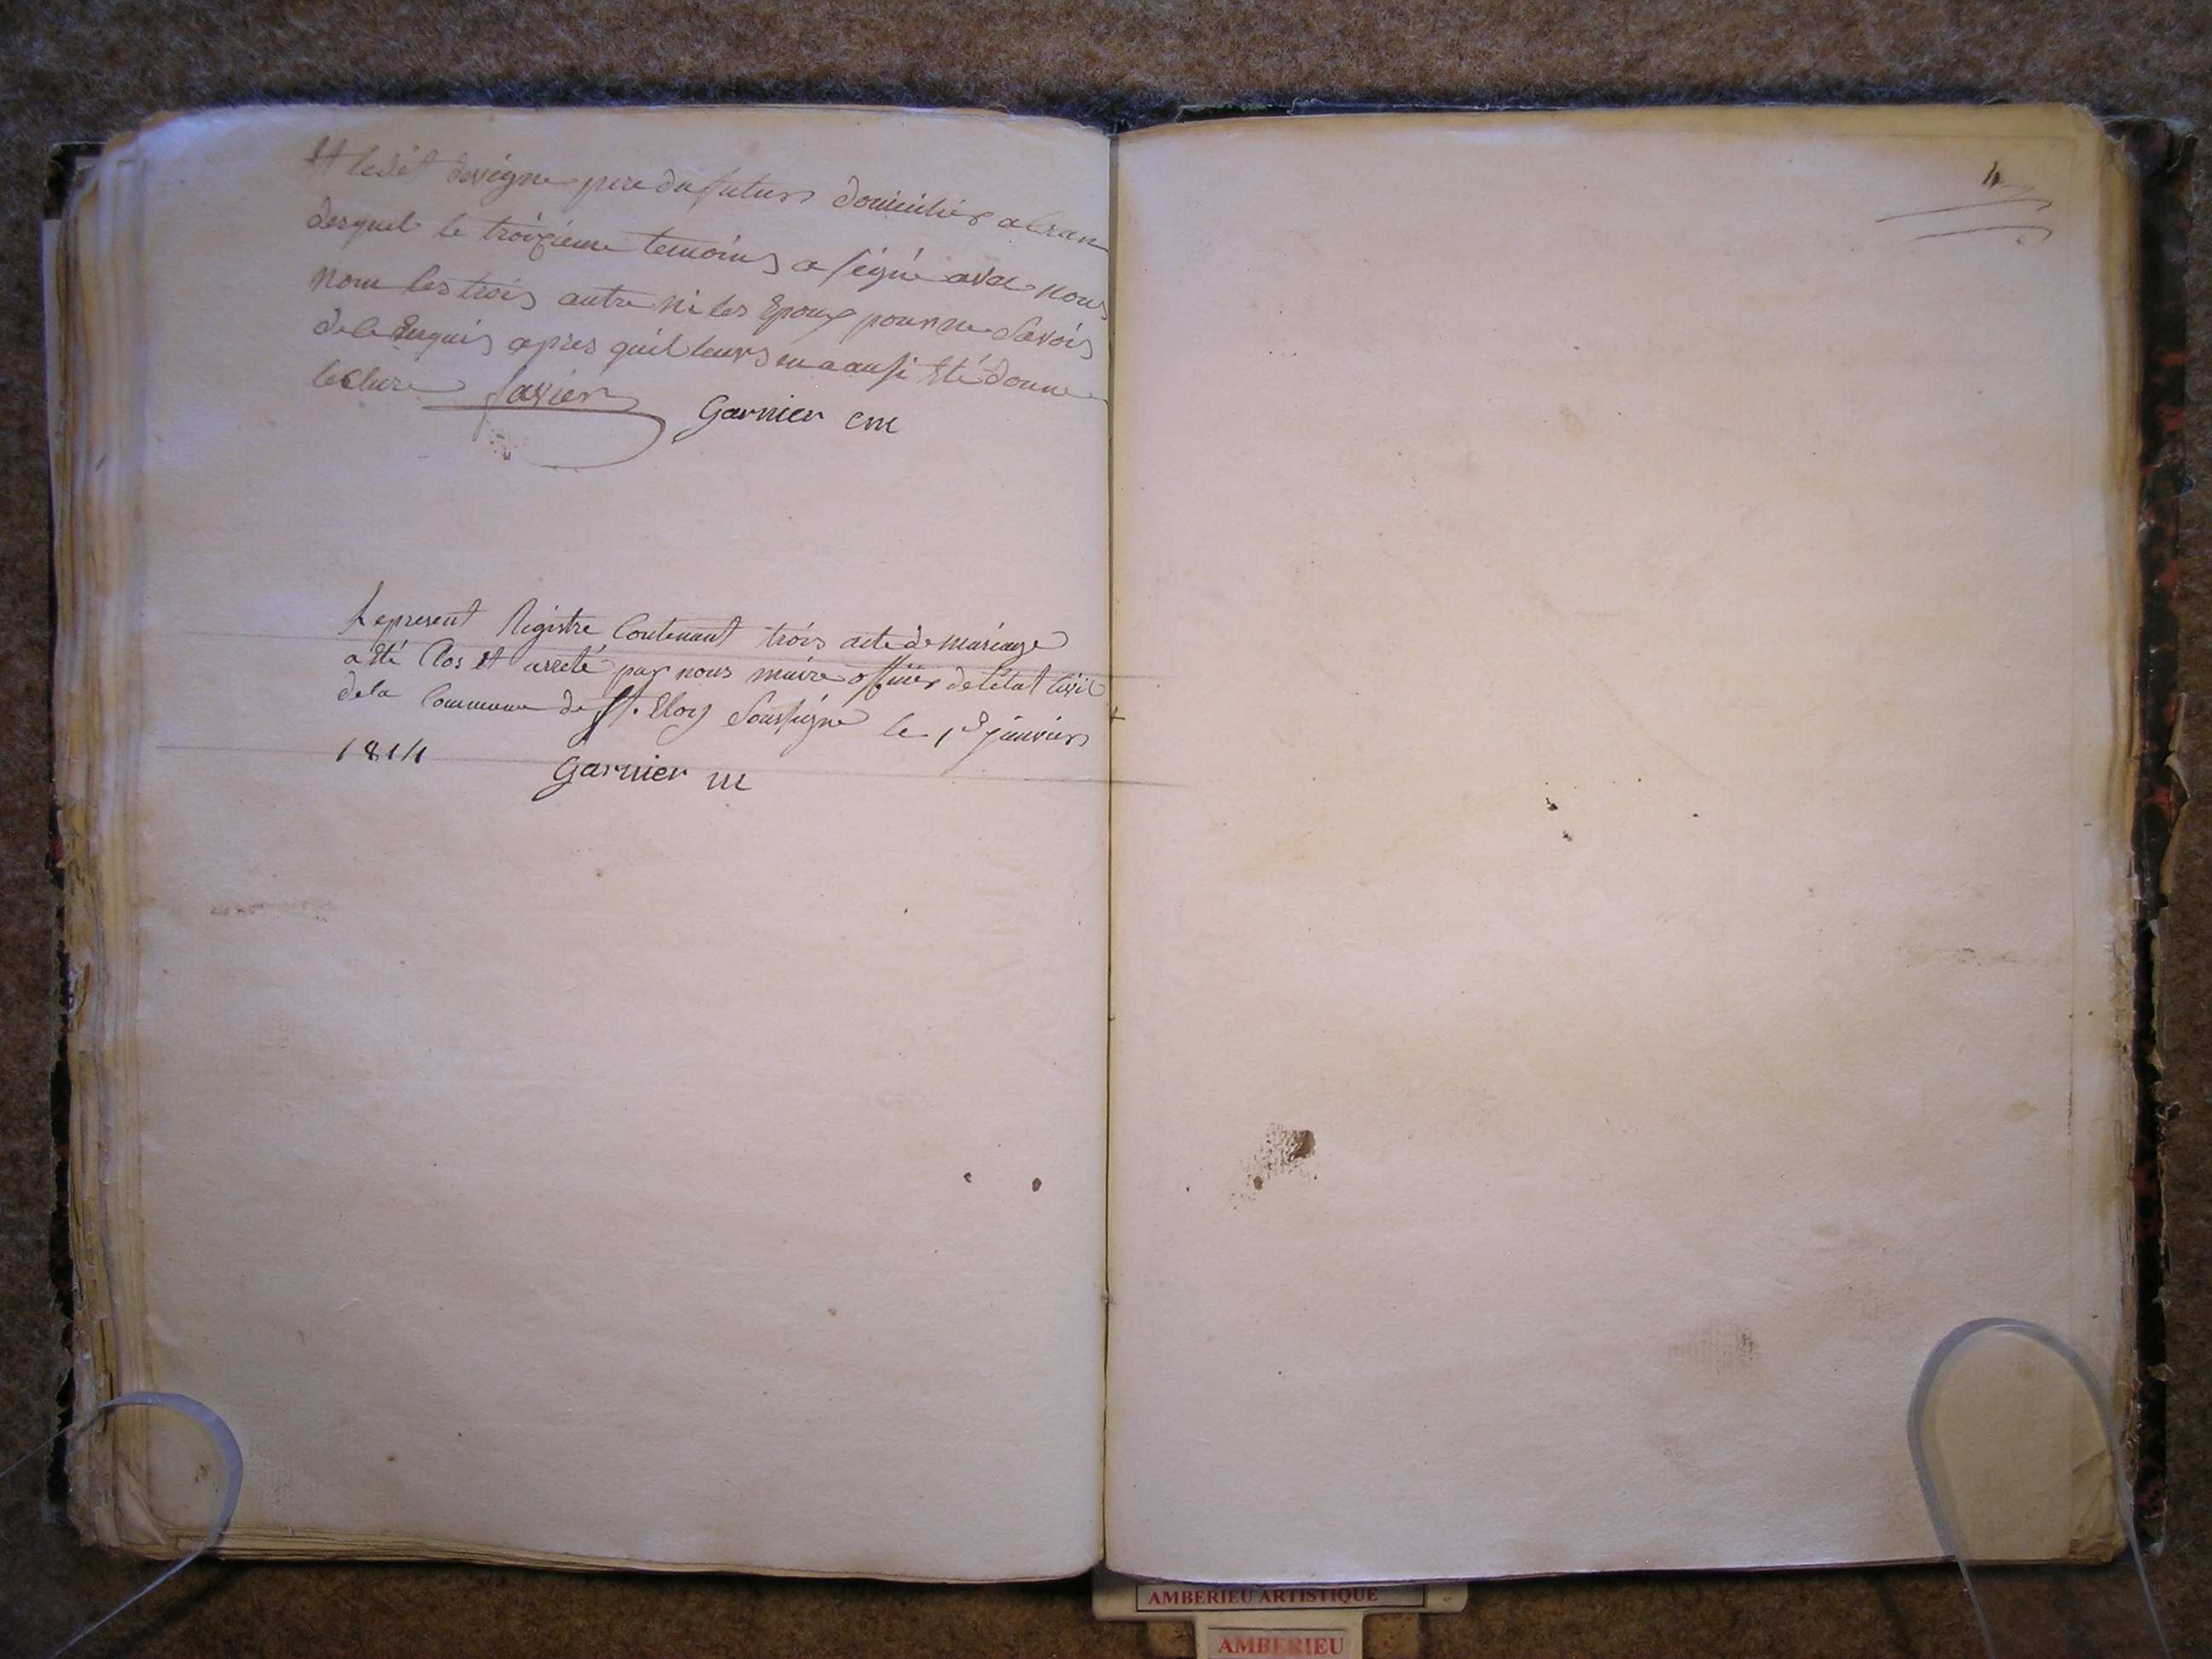 Et ledit devigne pere du futurs domicilier a Cran
desquel le troizieme temoins a signé avec nous
nom les trois autre ni les Epoux pour ne Savoir
de le Enquis apres quil leurs en a ausi Eté donne
lecture Javier Garnier cm
Le present Registre Contenant trois acte de mariage
a Eté Clos et arreté par nous maire officier de létat Civil
dela Commune de St. Eloy Soussigné le 1er janvier
1814 Garnier m
4
AMBERIEU ARTISTIQUE
AMBERIEU